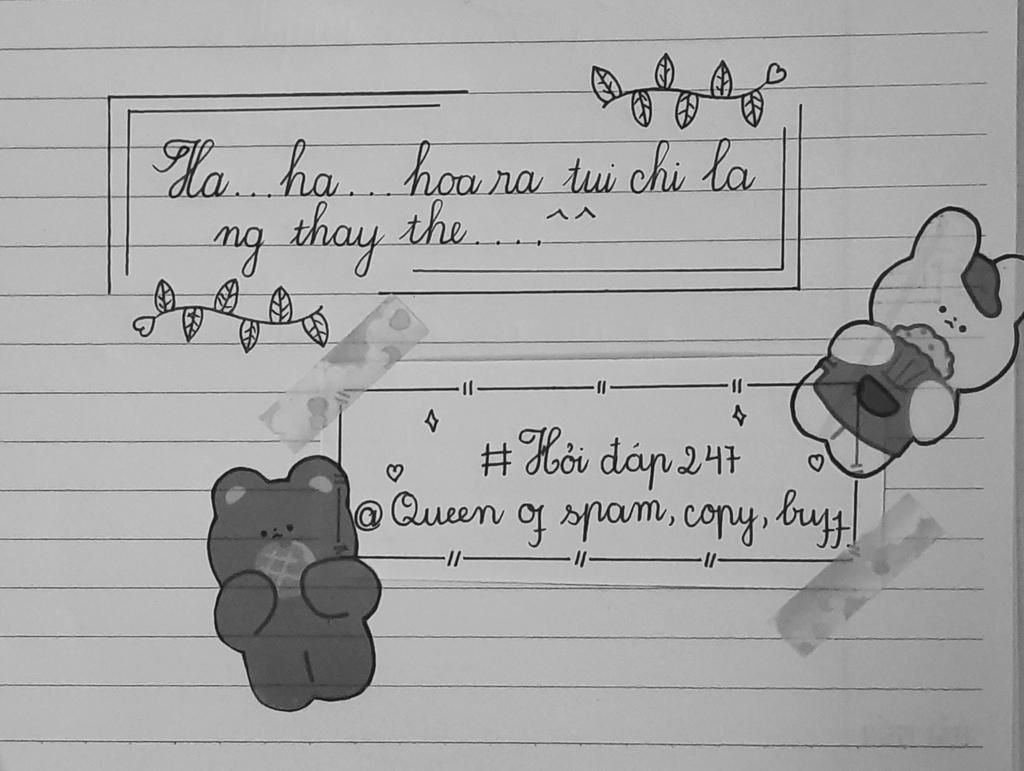 Ha...ha...hoa ra tui chi la
ng thay the....^^
# Hỏi đáp 247
@ Queen of spam, copy, buff